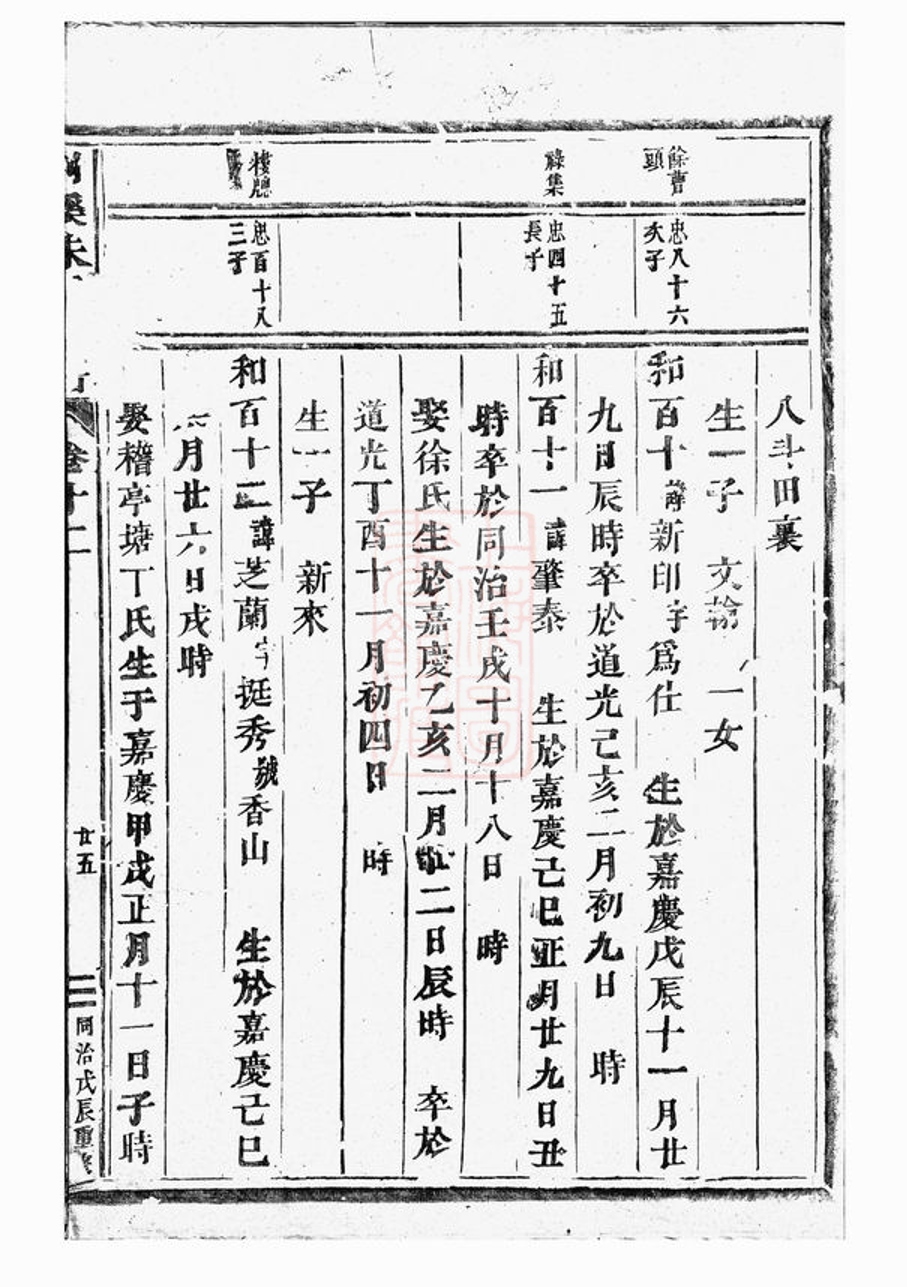 八斗田裏
生一子　文翰　一女
餘曹
頭
忠八十六
次子
和百十諱新印字爲仕　生於嘉慶戊辰十一月廿
九日辰時卒於道光己亥二月初九日　時
祿集
忠四十五
長子
和百十一諱肇泰　生於嘉慶己巳正月廿九日丑
時卒於同治壬戌十月十八日　時
娶徐氏生於嘉慶乙亥二月二日辰時　卒於
道光丁酉十一月初四日　時
生一子　新來
樓
忠百十八
三子
和百十二諱芝蘭字挺秀號香山　生於嘉慶己巳
六月廿六日戌時
娶稽亭塘丁氏生于嘉慶甲戌正月十一日子時
溪朱
卷十二
廿五
同治戊辰重修